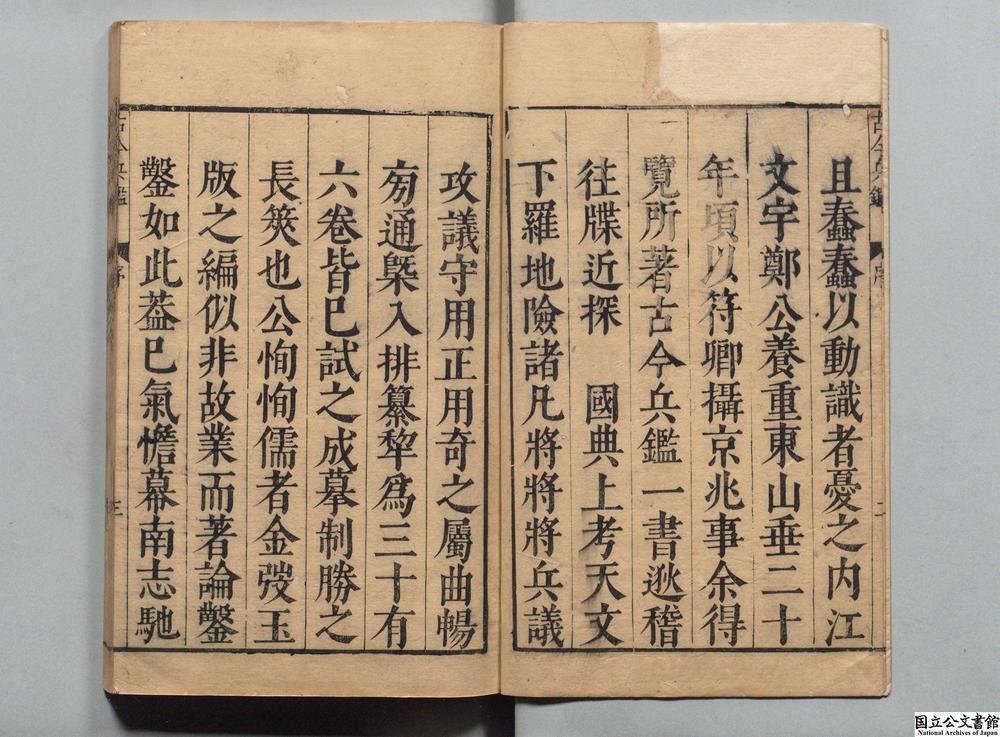 且蠢蠢以動識者憂之内江
文宇鄭公養重東山垂二十
年頃以符卿攝京兆事余得
覽所著古今兵鑑一書逖稽
往牒近探　國典上考天文
下羅地險諸凡將將將兵議
攻議守用正用奇之屬曲暢
旁通槩入排纂犂爲三十有
六卷皆已試之成摹制勝之
長筴也公恂恂儒者金弢玉
版之編似非故業而著論鑿
鑿如此葢已氣憺幕南志馳
古今兵鑑
序
三
国立公文書館
National Archives of Japan